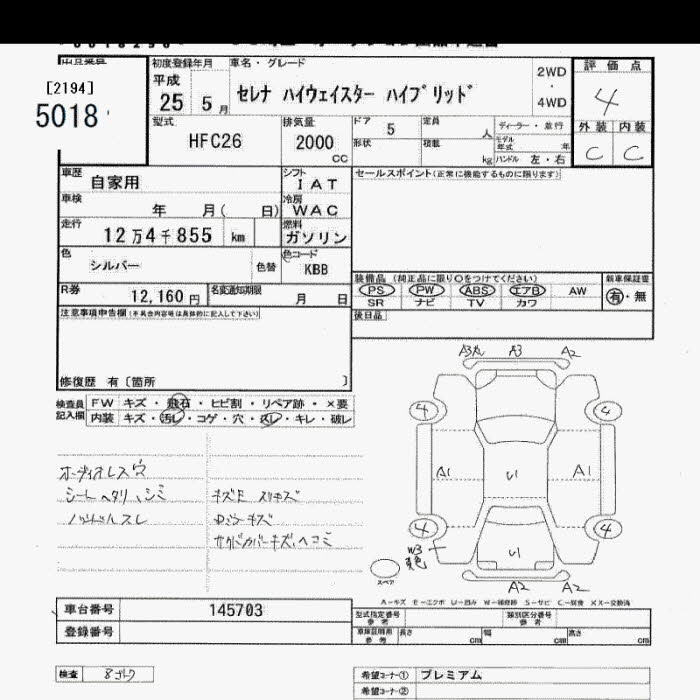 [2194]
5018
初度登録年月
平成
25 5月
車名・グレード
セレナ ハイウェイスター ハイブリッド
2WD
・
4WD
評価点
4
外装 内装
C C
型式
HFC26
排気量
2000
cc
ドア 5
形状
定員 人
積載 kg
ディーラー・並行
モデル年式 年
ハンドル 左・右
車歴 自家用
シフト IAT
セールスポイント(正常に機能するものに限ります)
車検 年 月( 日)
冷房 WAC
走行 12万4千855 km
燃料 ガソリン
色 シルバー 色替
色コード KBB
R券 12,160円
名変通知期限 月 日
装備品(純正品に限り○をつけてください)
PS PW ABS エアB AW
SR ナビ TV カワ
新車保証書
有・無
後日品
注意事項申告欄(不具合内容等は具体的に記入して下さい)
修復歴 有〔箇所 〕
検査員記入欄
FW キズ・飛石・ヒビ割・リペア跡・×要
内装 キズ・汚レ・コゲ・穴・スレ・キレ・破レ
オーディオレス穴
シートヘタリ、シミ
ハンドルスレ
キズE スリキズ
A3 A2
4 4
A1 U1 A1
4 4
W3
U1
スペア
A2 A2
A-キズ E-エクボ U-凹み W-補修跡 S-サビ C-腐食 XX-交換済
車台番号 145703
登録番号
型式指定番号 参考
類別区分番号 参考
長さ cm 幅 cm 高さ cm
検査
希望コーナー① プレミアム
希望コーナー②